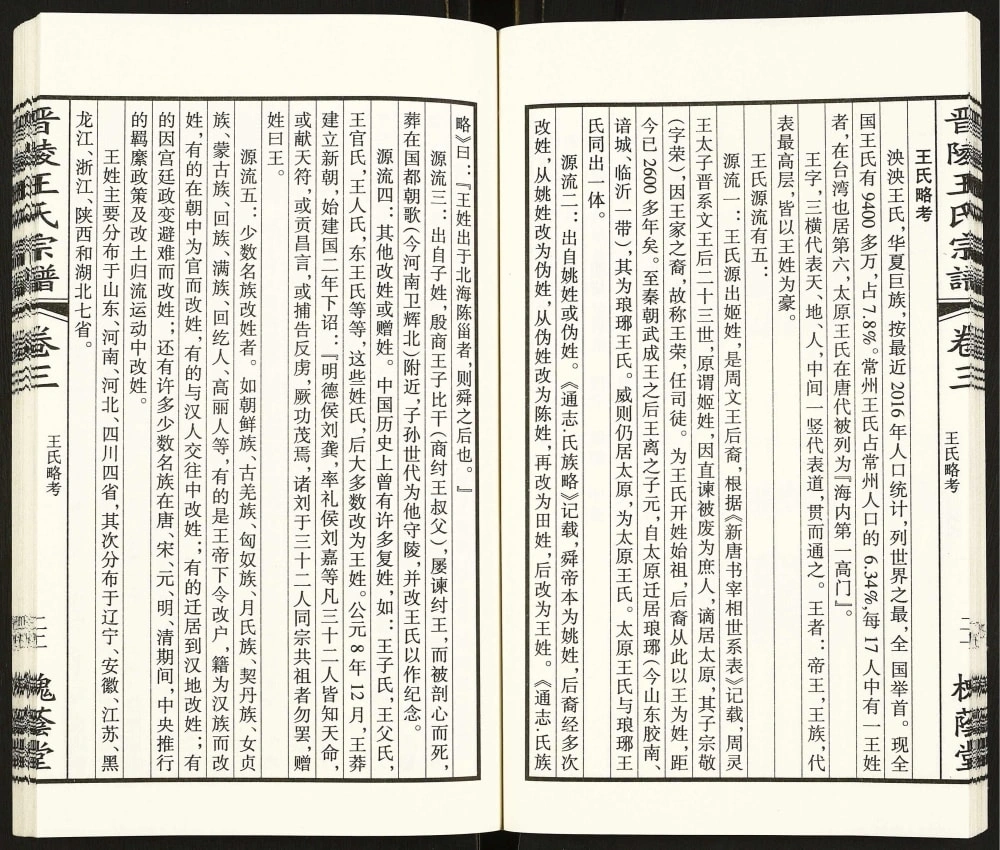 王氏略考
泱泱王氏,华夏巨族,按最近 2016 年人口统计,列世界之最,全 国举首。现全
国王氏有 9400 多万,占 7.8%。常州王氏占常州人口的 6.34%,每 17 人中有一王姓
者,在台湾也居第六,太原王氏在唐代被列为『海内第一高门』。
王字,三横代表天、地、人,中间一竖代表道,贯而通之。王者:帝王,王族,代
表最高层,皆以王姓为豪。
王氏源流有五:
源流一:王氏源出姬姓,是周文王后裔,根据《新唐书宰相世系表》记载,周灵
王太子晋系文王后二十三世,原谓姬姓,因直谏被废为庶人,谪居太原,其子宗敬
(字荣),因王家之裔,故称王荣,任司徒。为王氏开姓始祖,后裔从此以王为姓,距
今已 2600 多年矣。至秦朝武成王之后王离之子元,自太原迁居琅琊(今山东胶南、
谙城、临沂一带),其为琅琊王氏。威则仍居太原,为太原王氏。太原王氏与琅琊王
氏同出一体。
源流二:出自姚姓或伪姓。《通志·氏族略》记载,舜帝本为姚姓,后裔经多次
改姓,从姚姓改为伪姓,从伪姓改为陈姓,再改为田姓,后改为王姓。《通志·氏族
晋陵王氏宗譜
卷三
王氏略考
槐蔭堂
略》曰:『王姓出于北海陈甾者,则舜之后也。』
源流三:出自子姓,殷商王子比干(商纣王叔父),屡谏纣王,而被剖心而死,
葬在国都朝歌(今河南卫辉北)附近,子孙世代为他守陵,并改王氏以作纪念。
源流四:其他改姓或赠姓。中国历史上曾有许多复姓,如:王子氏,王父氏,
王官氏,王人氏,东王氏等等,这些姓氏,后大多数改为王姓。公元 8 年 12 月,王莽
建立新朝,始建国二年下诏:『明德侯刘龚,率礼侯刘嘉等凡三十二人皆知天命,
或献天符,或贡昌言,或捕告反虏,厥功茂焉,诸刘于三十二人同宗共祖者勿罢,赠
姓曰王。
源流五:少数名族改姓者。如朝鲜族、古羌族、匈奴族、月氏族、契丹族、女贞
族、蒙古族、回族、满族、回纥人、高丽人等,有的是王帝下令改户,籍为汉族而改
姓,有的在朝中为官而改姓,有的与汉人交往中改姓;有的迁居到汉地改姓;有
的因宫廷政变避难而改姓;还有许多少数名族在唐、宋、元、明、清期间,中央推行
的羁縻政策及改土归流运动中改姓。
王姓主要分布于山东、河南、河北、四川四省,其次分布于辽宁、安徽、江苏、黑
龙江、浙江、陕西和湖北七省。
晋陵王氏宗譜
卷三
王氏略考
槐蔭堂